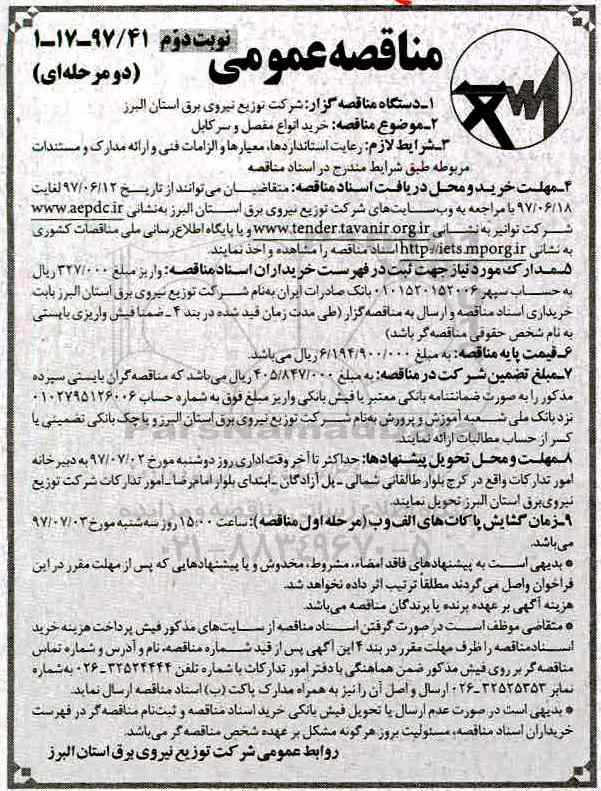 مناقصه عمومی نوبت دوم ۹۷/۴۱-۱۷-۱
(دو مرحله‌ای)
۱-دستگاه مناقصه گزار: شرکت توزیع نیروی برق استان البرز
۲-موضوع مناقصه: خرید انواع مفصل و سرکابل
۳-شرایط لازم: رعایت استانداردها، معیارها و الزامات فنی و ارائه مدارک و مستندات
مربوطه طبق شرایط مندرج در اسناد مناقصه
۴-مهلت خرید و محل دریافت اسناد مناقصه: متقاضیان می‌توانند از تاریخ ۹۷/۰۶/۱۲ لغایت
۹۷/۰۶/۱۸ با مراجعه به وب‌سایت‌های شرکت توزیع نیروی برق استان البرز به‌نشانی www.aepdc.ir
شرکت توانیر به نشانی www.tender.tavanir.org.ir و یا پایگاه اطلاع‌رسانی ملی مناقصات کشوری
به نشانی http://iets.mporg.ir اسناد مناقصه را مشاهده و اخذ نمایند.
۵-مدارک مورد نیاز جهت ثبت در فهرست خریداران اسناد مناقصه: واریز مبلغ ۳۲۷/۰۰۰ ریال
به حساب سپهر ۰۱۰۱۵۲۰۱۵۲۰۰۶ بانک صادرات ایران به‌نام شرکت توزیع نیروی برق استان البرز بابت
خریداری اسناد مناقصه و ارسال به مناقصه‌گزار (طی مدت زمان قید شده در بند ۴ -ضمنا فیش واریزی بایستی
به نام شخص حقوقی مناقصه‌گر باشد)
۶-قیمت پایه مناقصه: به مبلغ ۶/۱۹۴/۹۰۰/۰۰۰ ریال می‌باشد.
۷-مبلغ تضمین شرکت در مناقصه: به مبلغ ۴۰۵/۸۴۷/۰۰۰ ریال می‌باشد که مناقصه‌گران بایستی سپرده
مذکور را به صورت ضمانتنامه بانکی معتبر یا فیش بانکی واریز مبلغ فوق به شماره حساب ۰۱۰۲۷۹۵۱۲۶۰۰۶
نزد بانک ملی شعبه آموزش و پرورش به‌نام شرکت توزیع نیروی برق استان البرز و یا چک بانکی تضمینی یا
کسر از حساب مطالبات ارائه نمایند.
۸-مهلت و محل تحویل پیشنهادها: حداکثر تا آخر وقت اداری روز دوشنبه مورخ ۹۷/۰۷/۰۲ به دبیرخانه
امور تدارکات واقع در کرج بلوار طالقانی شمالی - پل آزادگان -ابتدای بلوار امام رضا -امور تدارکات شرکت توزیع
نیروی برق استان البرز تحویل نمایند.
۹-زمان گشایش پاکات‌های الف و ب (مرحله اول مناقصه): ساعت ۱۵:۰۰ روز سه‌شنبه مورخ ۹۷/۰۷/۰۳
می‌باشد.
* بدیهی است به پیشنهادهای فاقد امضاء، مشروط، مخدوش و یا پیشنهادهایی که پس از مهلت مقرر در این
فراخوان واصل می‌گردند مطلقاً ترتیب اثر داده نخواهد شد.
هزینه آگهی بر عهده برنده یا برندگان مناقصه می‌باشد.
* متقاضی موظف است در صورت گرفتن اسناد مناقصه از سایت‌های مذکور فیش پرداخت هزینه خرید
اسناد مناقصه را ظرف مهلت مقرر در بند ۴ این آگهی پس از قید شماره مناقصه، نام و آدرس و شماره تماس
مناقصه‌گر بر روی فیش مذکور ضمن هماهنگی با دفتر امور تدارکات با شماره تلفن ۳۲۵۲۴۴۴۴-۰۲۶ به‌شماره
نمابر ۳۲۵۲۵۳۵۳-۰۲۶ ارسال و اصل آن را نیز به همراه مدارک پاکت (ب) اسناد مناقصه ارسال نماید.
* بدیهی است در صورت عدم ارسال یا تحویل فیش بانکی خرید اسناد مناقصه و ثبت‌نام مناقصه‌گر در فهرست
خریداران اسناد مناقصه، مسئولیت بروز هرگونه مشکل بر عهده شخص مناقصه‌گر می‌باشد.
روابط عمومی شرکت توزیع نیروی برق استان البرز